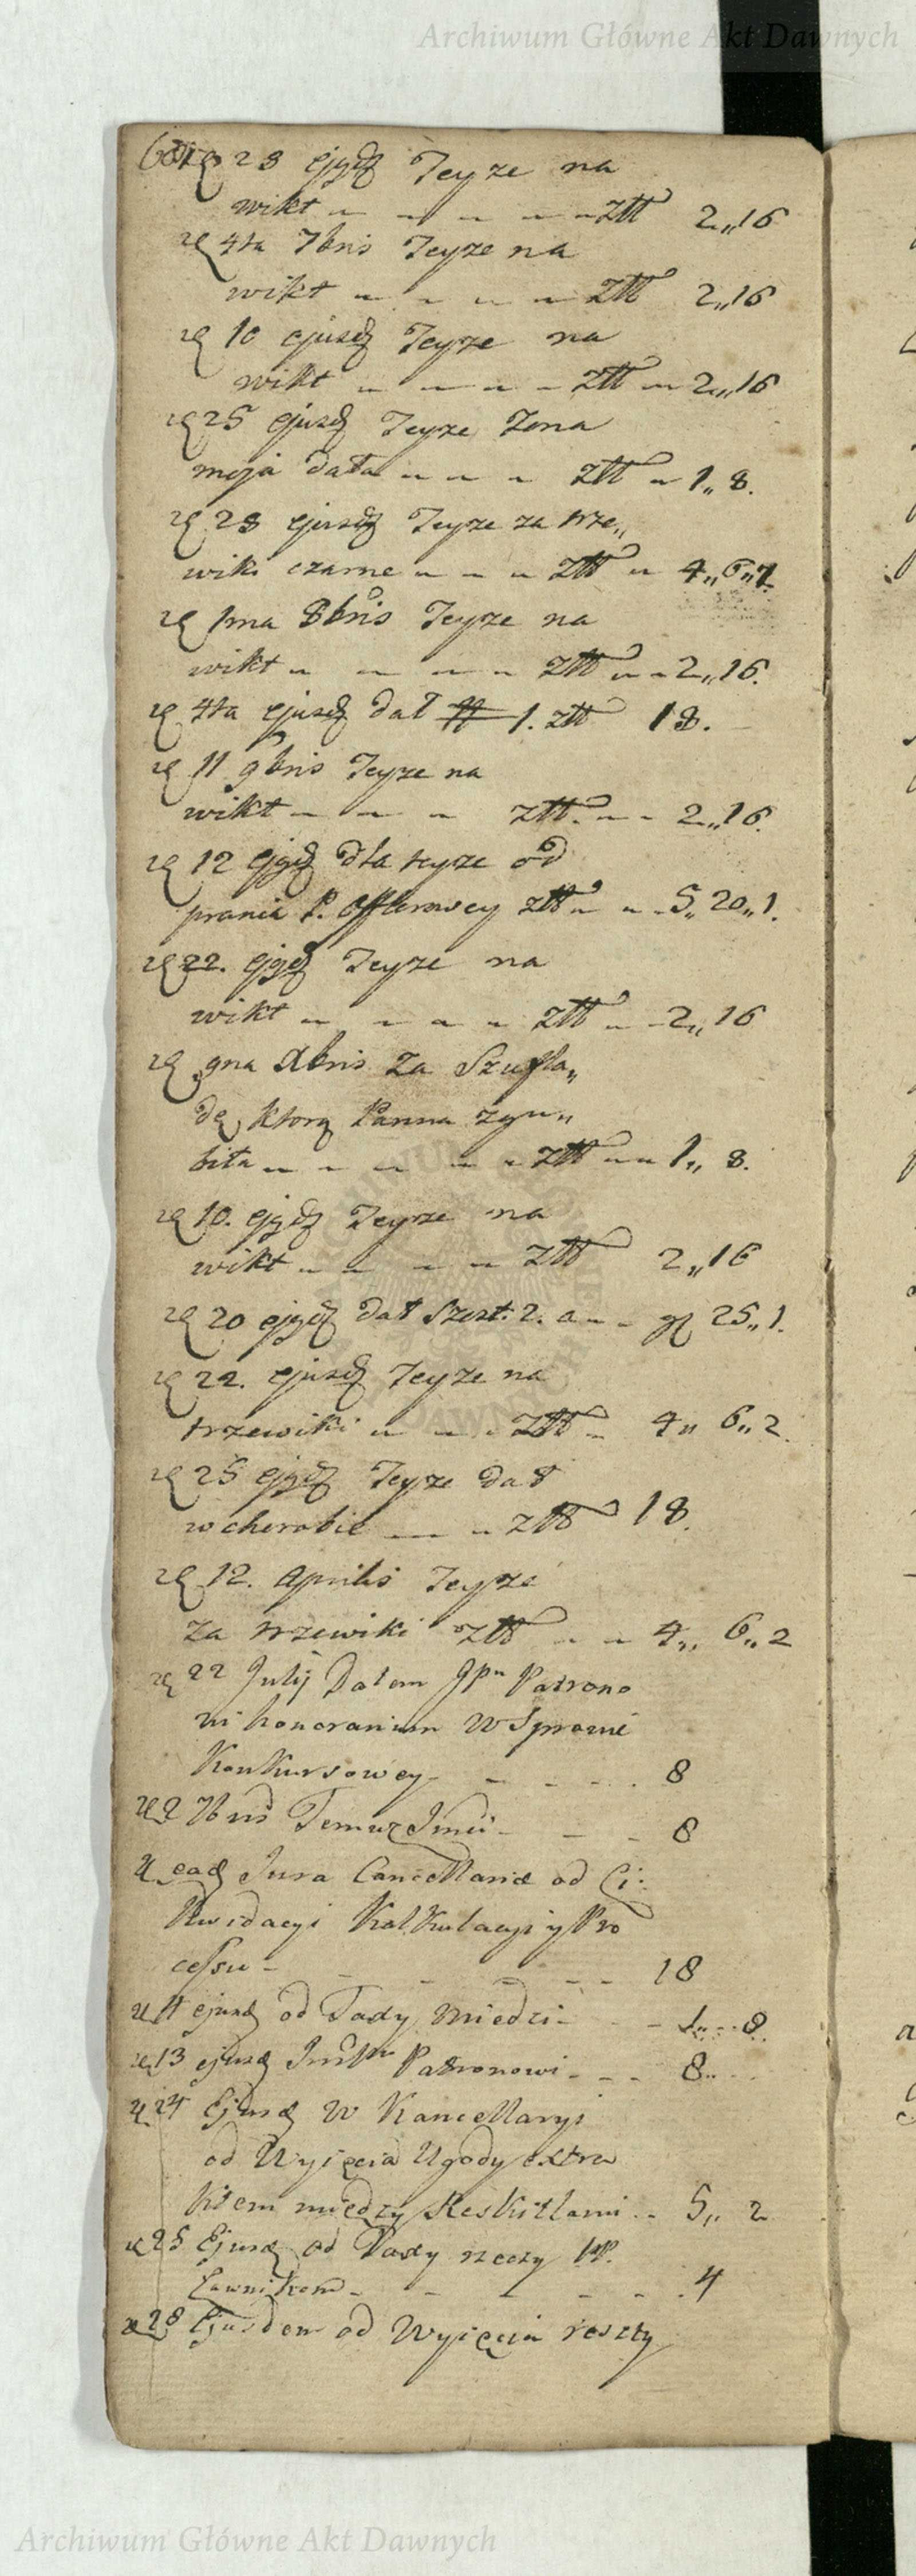 Archiwum Główne Akt Dawnych
28 ejgdę Teyze na
wikt - - - - złł 2,,16
4ta 7bris Teyze na
wikt - - - - złł 2,,16
10 ejusdę Teyze na
wikt - - - - złł - 2,,16
25 ejusdę Teyze Zona
moja dała - - - złł - 1,, 8.
28 ejusdę Teyze za trze,,
wiki czarne - - - złł - 4,,6,,1
1ma 8bris Teyze na
wikt - - - - złł - - 2,,16.
4ta ejusdę dał # 1. złł 18.
11 9bris Teyze na
wikt - - - złł. - - 2,,16.
12 ejgdę dla teyze od
prania P. złł - - 5,,20,,1.
22. ejgdę Teyze na
wikt - - - - złł - - 2,,16
9na Xbris Za Szufla,,
dę, ktorą Panna zgu,,
biła - - - - - złł - - 1,, 8.
10. ejgdę Teyze na
wikt - - - - złł 2,,16
20 ejgdę dał Szost. 2. a - - gł 25,,1.
22. ejusdę Teyze na
trzewiki - - - złł - 4,, 6,,2.
25 ejgdę Teyze dał
w chorobie - - złł 18.
12. Aprilis Teyze
za trzewiki złł - - 4,, 6,,2
22 Julij Dałem Patrono
wi honorarium W Sprawie
Konkursowey - - - - 8
2 7bris Temuz - - - 8
eadę Jura Cancellariæ od Li:
kwidacyi Kalkulacyi y Pro
cessu - - - - - 18
11 ejusdę od Tady Miedzi - - - 1,,--8.
13 ejusdę Patronowi - - - 8..
24 Ejusdę W Kancellaryi
od Wyięcia Ugody extra
ktem między - - 5,, 2
25 Ejusdę od Rady rzeczy
Ławnikom - - - - - 4
28 Ejusdem od Wyięcia reszty
Archiwum Główne Akt Dawnych